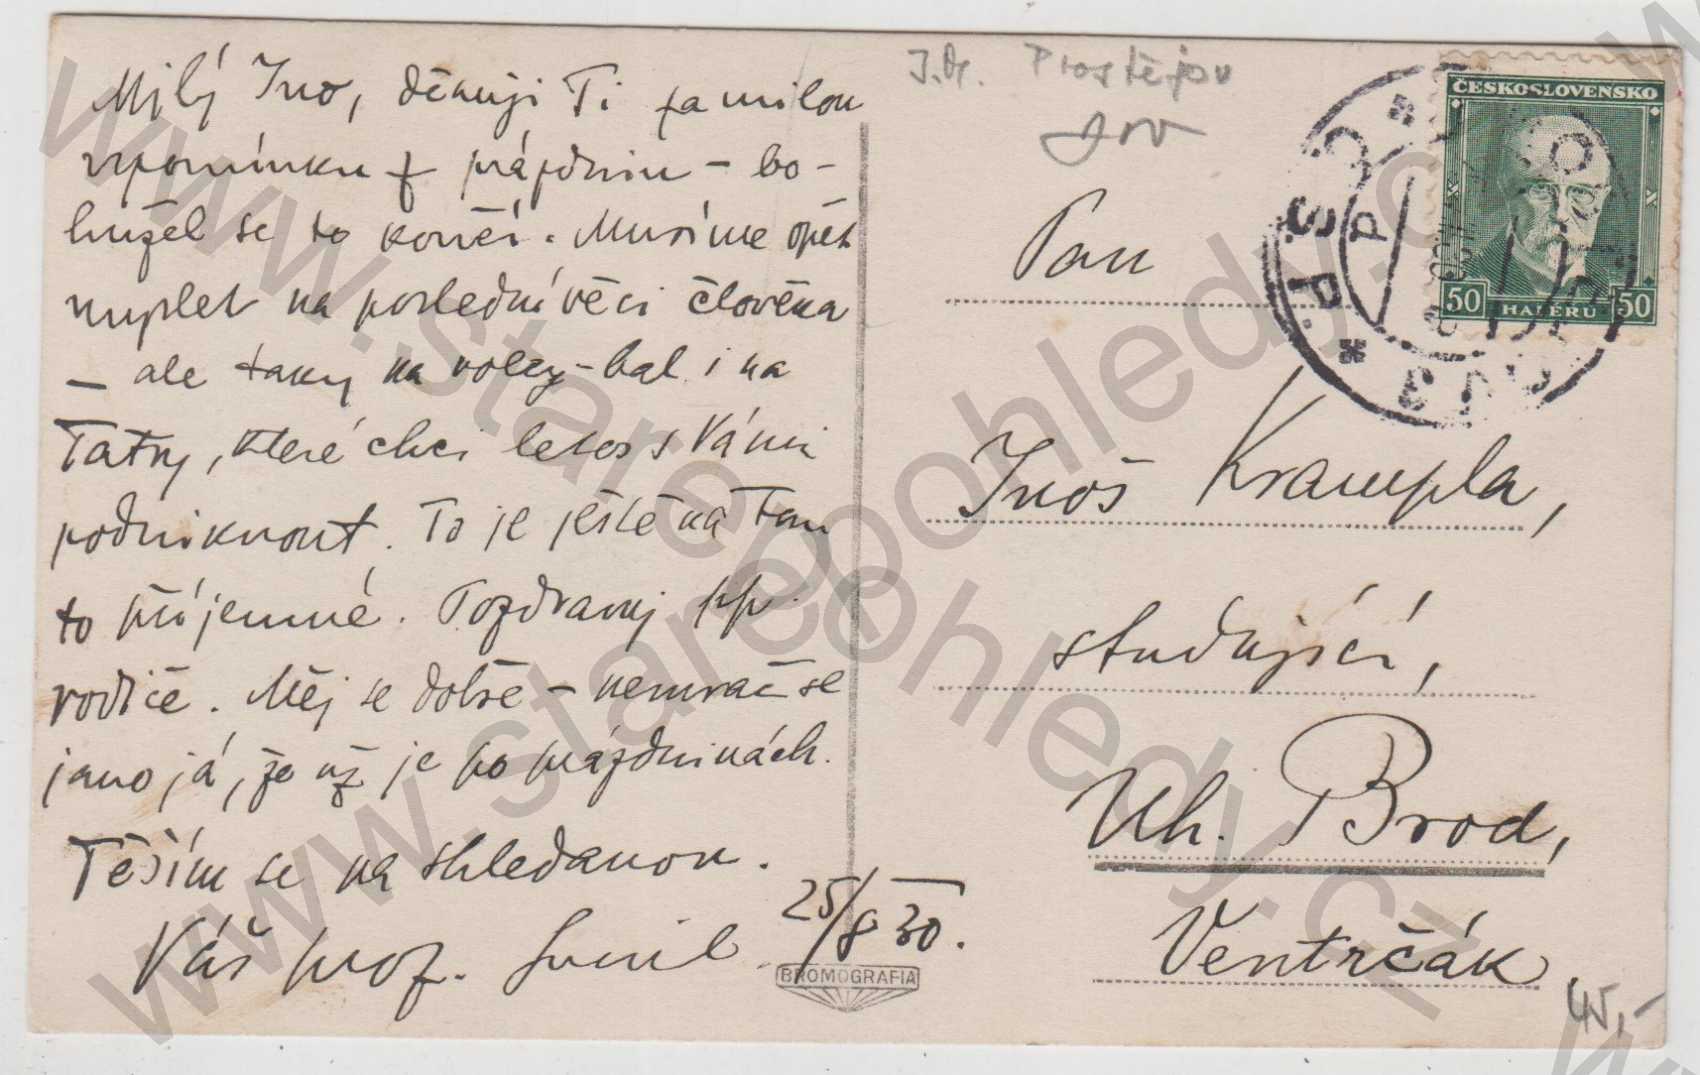 Milý Ino, děkuji Ti za milou
vzpomínku z prázdnin – bo-
hužel se to končí. Musíme opět
myslet na poslední věci člověka
– ale taky na voley-bal i na
Tatry, které chci letos s Vámi
podniknout. To je ještě na tom
to příjemné. Pozdravuj pp.
rodiče. Měj se dobře – nemrač se
jako já, že už je po prázdninách.
Těším se na shledanou.
Váš prof.
25/8 30.
BROMOGRAFIA
J.D. Prostějov
ČESKOSLOVENSKO
50 HALERU 50
Pan
Inoš Krampla,
studující,
Uh. Brod,
Ventrčák.
45,-
www.starepohledy.cz
www.starepohledy.cz